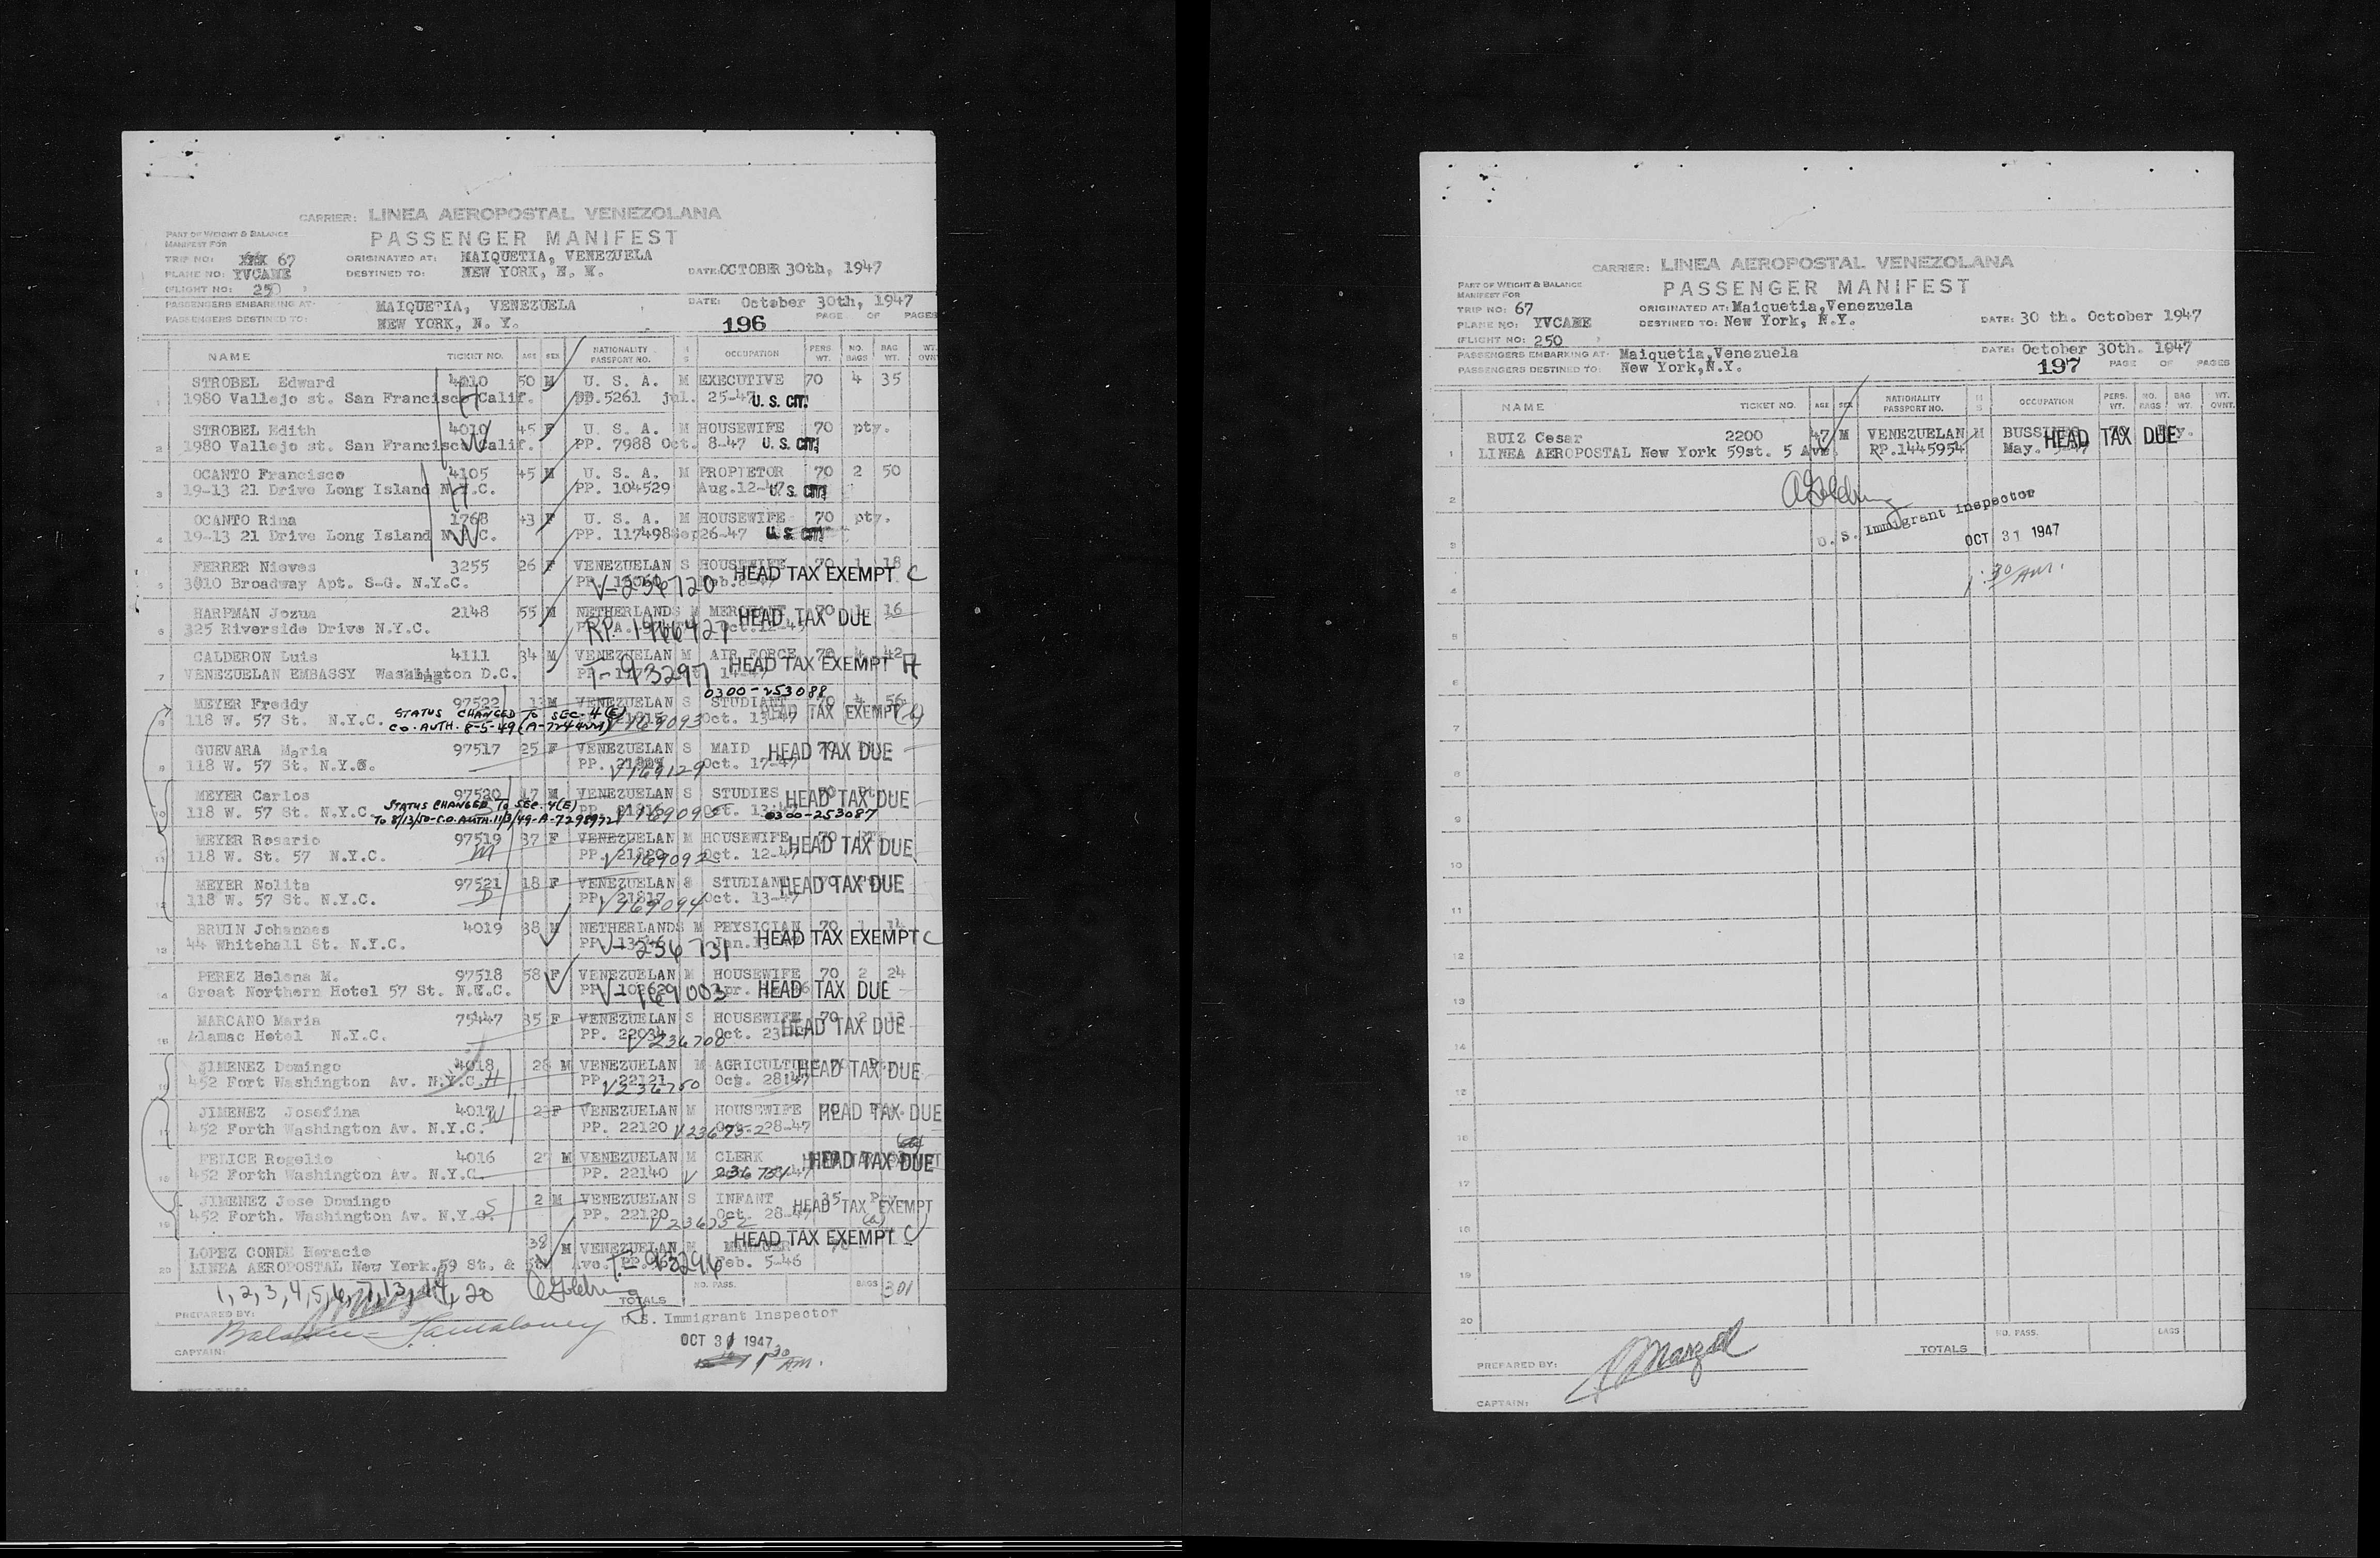 CARRIER: LINEA AEROPOSTAL VENEZOLANA
PART OF WEIGHT & BALANCE
MANIFEST FOR
PASSENGER MANIFEST
TRIP NO: XXX 67 ORIGINATED AT: MAIQUETIA, VENEZUELA
PLANE NO: YVCAME DESTINED TO: NEW YORK, N. Y. DATE: OCTOBER 30th, 1947
(FLIGHT NO: 250 )
PASSENGERS EMBARKING AT: MAIQUETIA, VENEZUELA DATE: October 30th, 1947
PASSENGERS DESTINED TO: NEW YORK, N. Y. 196 PAGE OF PAGES
NAME TICKET NO. AGE SEX NATIONALITY PASSPORT NO. M S OCCUPATION PERS. WT. NO. BAGS BAG WT. WT. OVNT
1 STROBEL Edward 4010 50 M U. S. A. M EXECUTIVE 70 4 35
1980 Vallejo st. San Francisco Calif. H PP.5261 jul. 25-47 U. S. CIT.
2 STROBEL Edith 4010 45 F U. S. A. M HOUSEWIFE 70 pty.
1980 Vallejo st. San Francisco Calif. W PP. 7988 Oct. 8-47 U. S. CIT.
3 OCANTO Francisco 4105 45 M U. S. A. M PROPIETOR 70 2 50
19-13 21 Drive Long Island N.Y.C. H PP. 104529 Aug.12-47 U. S. CIT.
4 OCANTO Rina 1768 43 F U. S. A. M HOUSEWIFE 70 pty.
19-13 21 Drive Long Island N.Y.C. W PP. 117498 Sep 26-47 U. S. CIT.
5 FERRER Nieves 3255 26 F VENEZUELAN S HOUSEWIFE 70 1 18
3010 Broadway Apt. S-G. N.Y.C. V-236720 HEAD TAX EXEMPT C
6 HARPMAN Jozua 2148 55 M NETHERLANDS M MERCHANT 70 1 16
325 Riverside Drive N.Y.C. RP. 1966427 HEAD TAX DUE
7 CALDERON Luis 4111 34 M VENEZUELAN M AIR FORCE 70 4 42
VENEZUELAN EMBASSY Washington D.C. T-93297 HEAD TAX EXEMPT A
0300-253088
8 MEYER Freddy 97522 13 M VENEZUELAN S STUDIANT 70 4 56
118 W. 57 St. N.Y.C. V169093 Oct. 13-47 HEAD TAX EXEMPT
STATUS CHANGED TO SEC. 4(E)
CO. AUTH. 8-5-49
9 GUEVARA Maria 97517 25 F VENEZUELAN S MAID HEAD TAX DUE
118 W. 57 St. N.Y.C. PP. V169129 Oct. 17-47
10 MEYER Carlos 97520 17 M VENEZUELAN S STUDIES HEAD TAX DUE
118 W. 57 St. N.Y.C. PP. 21816 V169095 Oct. 13-47
STATUS CHANGED TO SEC. 4(E)
TO 8/13/50-C.O. AUTH. 11/3/49-A-7298992 0300-253087
11 MEYER Rosario 97519 37 F VENEZUELAN M HOUSEWIFE 70
118 W. St. 57 N.Y.C. M PP. 21820 V169092 Oct. 12-47 HEAD TAX DUE
12 MEYER Nolita 97521 18 F VENEZUELAN S STUDIANT HEAD TAX DUE
118 W. 57 St. N.Y.C. D PP. 21817 V169094 Oct. 13-47
13 BRUIN Johannes 4019 38 M NETHERLANDS M PHYSICIAN 70 1 14
44 Whitehall St. N.Y.C. V-236731 HEAD TAX EXEMPT C
14 PEREZ Helena M. 97518 58 F VENEZUELAN M HOUSEWIFE 70 2 24
Great Northern Hotel 57 St. N.Y.C. V-169003 HEAD TAX DUE
15 MARCANO Maria 75447 35 F VENEZUELAN S HOUSEWIFE 70 2
Alamac Hotel N.Y.C. PP. 22034 V236708 Oct. 23 HEAD TAX DUE
16 JIMENEZ Domingo 4018 28 M VENEZUELAN M AGRICULTURE HEAD TAX DUE
452 Fort Washington Av. N.Y.C. H PP. 22121 V236750 Oct. 28-47
17 JIMENEZ Josefina 4017 W 23 F VENEZUELAN M HOUSEWIFE HEAD TAX DUE
452 Forth Washington Av. N.Y.C. PP. 22120 V236752 Oct. 28-47
18 FELICE Rogelio 4016 27 M VENEZUELAN M CLERK HEAD TAX DUE
452 Forth Washington Av. N.Y.C. PP. 22140 V 236754
19 JIMENEZ Jose Domingo 2 M VENEZUELAN S INFANT 35 Pty
452 Forth. Washington Av. N.Y.C. S PP. 22120 V236752 Oct. 28-47 HEAD TAX EXEMPT (a)
20 LOPEZ CONDE Horacio 38 M VENEZUELAN M MANAGER HEAD TAX EXEMPT C
LINEA AEROPOSTAL New York.59 St. & 5th Ave. T-93296 Feb. 5-46
1, 2, 3, 4, 5, 6, 7, 13, 14, 20
TOTALS NO. PASS. BAGS 301
PREPARED BY:
U.S. Immigrant Inspector
CAPTAIN:
OCT 31 1947
1 30 AM.
CARRIER: LINEA AEROPOSTAL VENEZOLANA
PART OF WEIGHT & BALANCE
MANIFEST FOR
PASSENGER MANIFEST
TRIP NO: 67 ORIGINATED AT: Maiquetia,Venezuela
PLANE NO: YVCAME DESTINED TO: New York, N.Y. DATE: 30 th. October 1947
(FLIGHT NO: 250 )
PASSENGERS EMBARKING AT: Maiquetia,Venezuela DATE: October 30th. 1947
PASSENGERS DESTINED TO: New York,N.Y. 197 PAGE OF PAGES
NAME TICKET NO. AGE SEX NATIONALITY PASSPORT NO. M S OCCUPATION PERS. WT. NO. BAGS BAG WT. WT. OVNT.
1 RUIZ Cesar 2200 47 M VENEZUELAN M BUSSINES HEAD TAX DUE
LINEA AEROPOSTAL New York 59st. 5 Ave. PP.1445954 May.
2
U. S. Immigrant Inspector
3
OCT 31 1947
1:30 AM.
4
5
6
7
8
9
10
11
12
13
14
15
16
17
18
19
20
TOTALS NO. PASS. BAGS
PREPARED BY:
CAPTAIN: